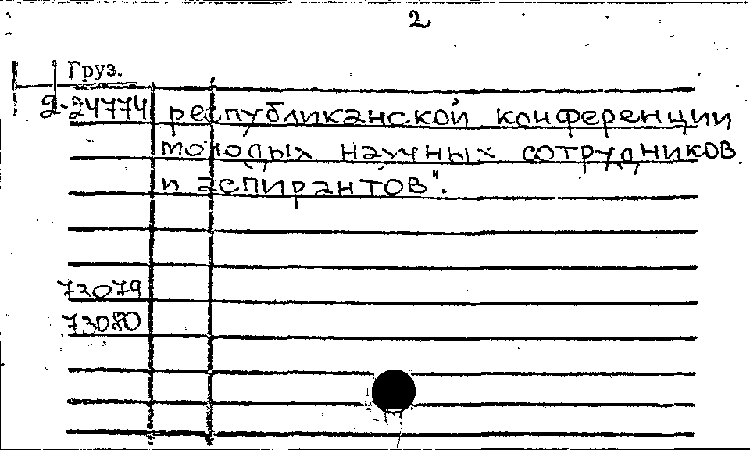 2
Груз.
2-24774 республиканской конференции
молодых научных сотрудников
и аспирантов".
73079
73080